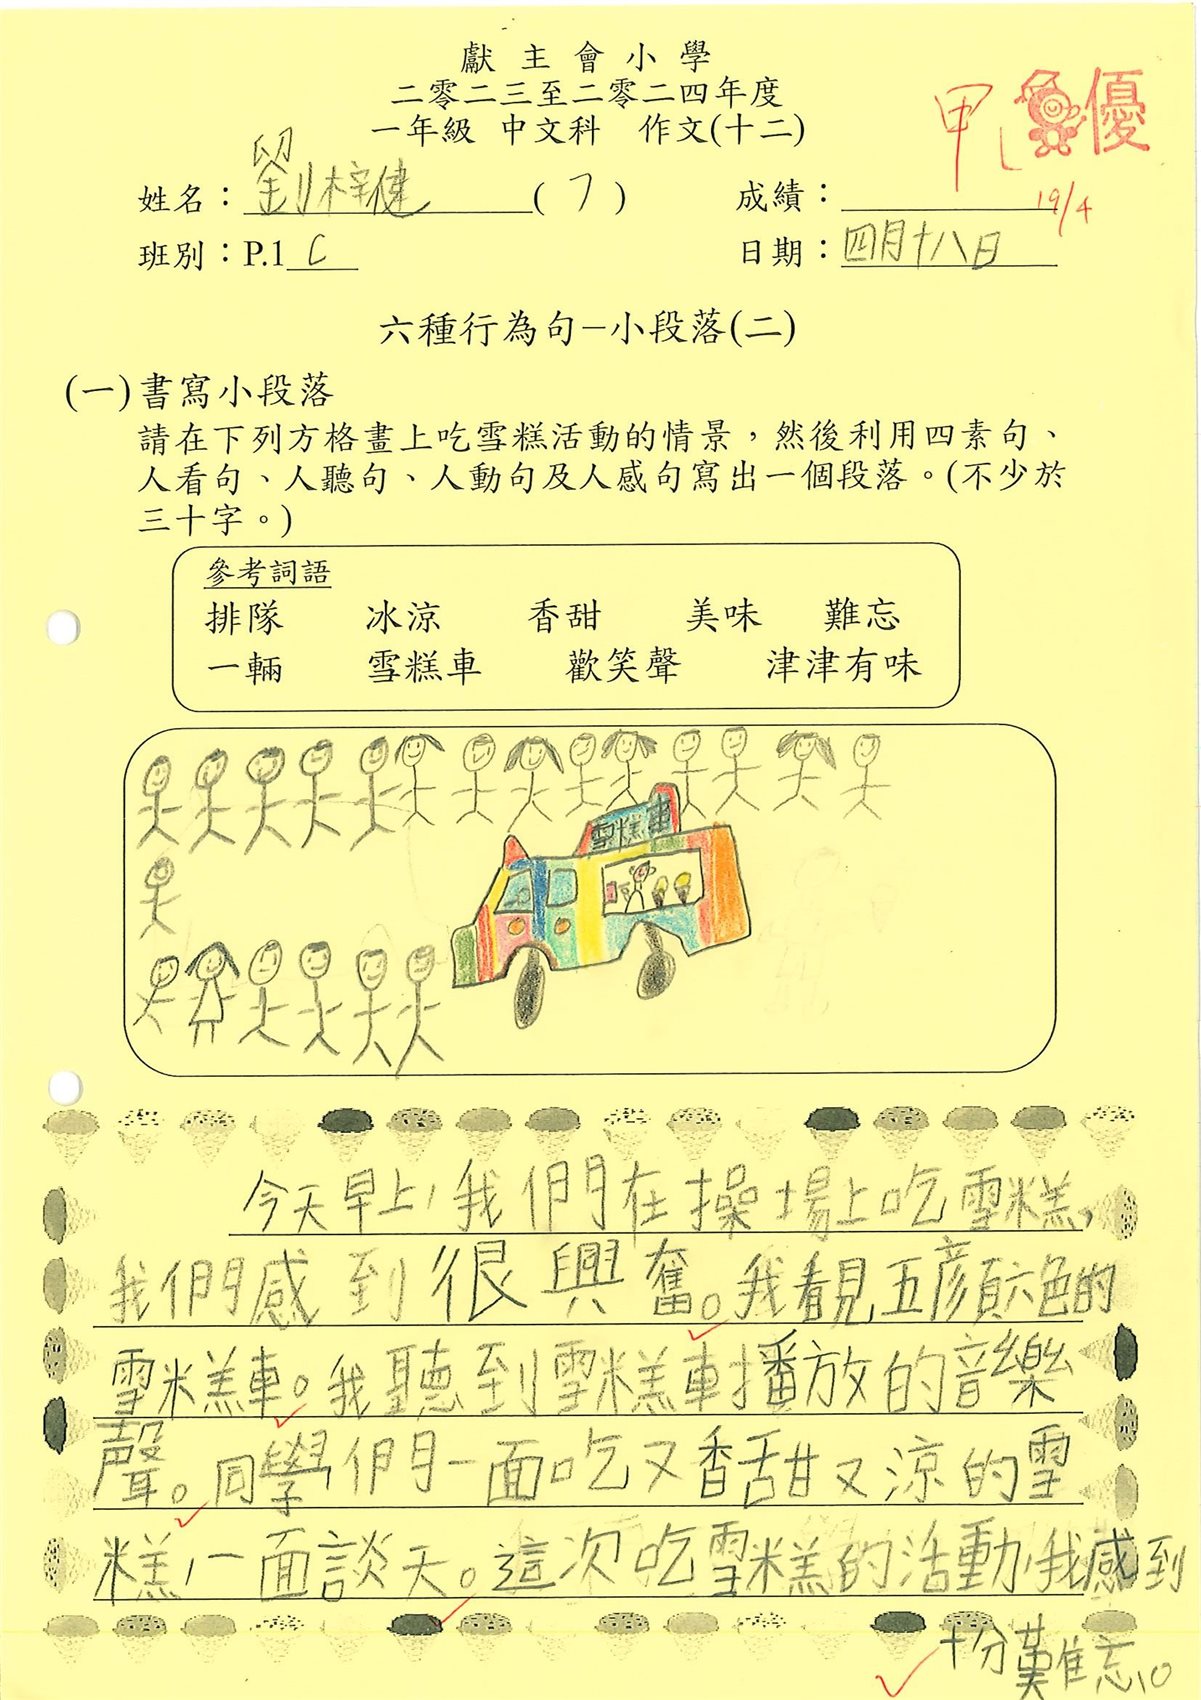 獻主會小學
二零二三至二零二四年度
一年級 中文科 作文(十二)
甲 優
姓名：劉梓健 (7) 成績：
19/4
班別：P.1 C 日期：四月十八日
六種行為句–小段落(二)
(一)書寫小段落
請在下列方格畫上吃雪糕活動的情景，然後利用四素句、
人看句、人聽句、人動句及人感句寫出一個段落。(不少於
三十字。)
參考詞語
排隊 冰涼 香甜 美味 難忘
一輛 雪糕車 歡笑聲 津津有味
雪糕車
今天早上，我們在操場上吃雪糕，
我們感到很興奮。我看見五顏六色的
雪糕車。我聽到雪糕車播放的音樂
聲。同學們一面吃又香甜又涼的雪
糕，一面談天。這次吃雪糕的活動，我感到
十分難忘。